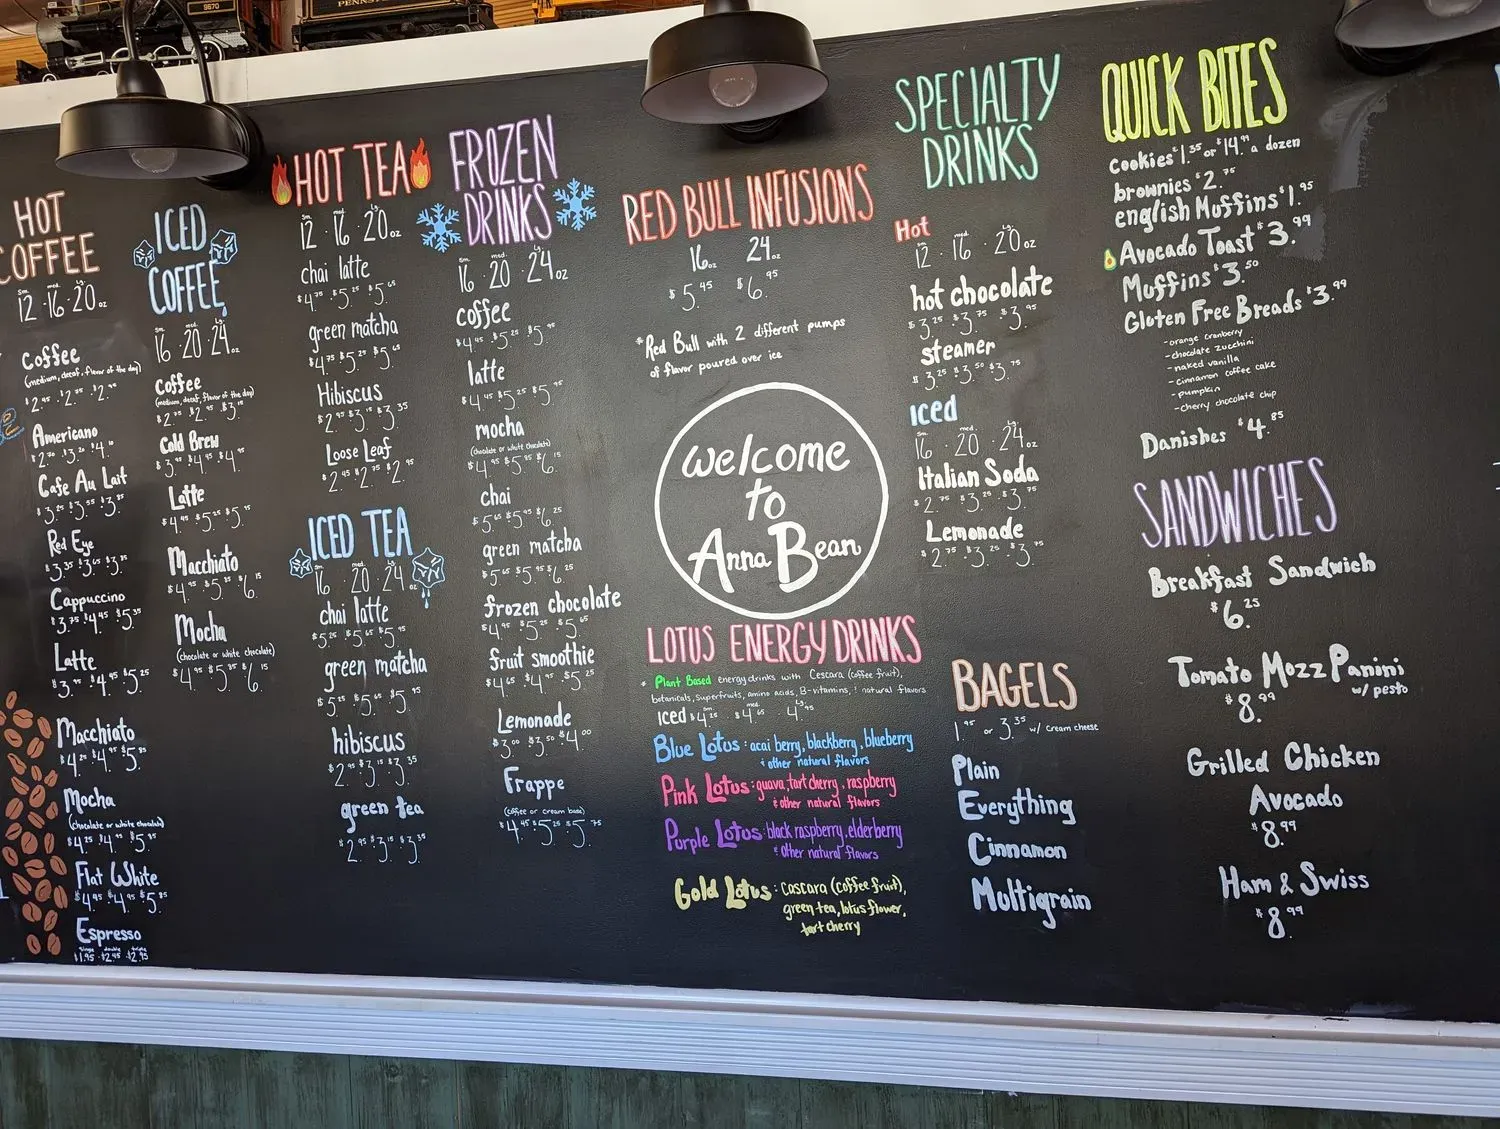 9870
PENNSYLV
HOT
COFFEE
12 · 16 · 20 oz
Coffee
(medium, decaf, flavor of the day)
$2.45 · $2.75 · $2.95
Americano
Cafe Au Lait
Red Eye
$3.35 $3.65 $3.
Cappuccino
$3.75 $4.45 $5.35
Latte
$3.95 $4.95 $5.25
Macchiato
$4.25 $4.95 $5.
Mocha
(chocolate or white chocolate)
$4.25 $4.95 $5.
Flat White
$4.45 $4.95 $5.
Espresso
single double triple
$1.95 $2.45 $2.95
ICED
COFFEE
sm. med. Lg.
16 · 20 · 24 oz
Coffee
(medium, decaf, flavor of the day)
$2.75 $2.95 $3.15
Cold Brew
$3.95 $4.45 $4.95
Latte
$4.45 $5.25 $5.95
Macchiato
$4.95 $5.35 $6.15
Mocha
(chocolate or white chocolate)
$4.95 $5.35 $6.15
HOT TEA
sm. med. Lg.
12 · 16 · 20 oz
chai latte
$4.75 $5.25 $5.65
green matcha
$4.75 $5.25 $5.65
Hibiscus
$2.95 $3.15 $3.35
Loose Leaf
$2.45 $2.75 $2.95
ICED TEA
sm. med. Lg.
16 · 20 · 24 oz
chai latte
$5.25 $5.65 $5.95
green matcha
$5.25 $5.65 $5.95
hibiscus
$2.95 $3.15 $3.35
green tea
$2.95 $3.15 $3.35
FROZEN
DRINKS
sm. med. Lg.
16 · 20 · 24 oz
coffee
$4.95 $5.25 $5.95
latte
$4.45 $5.25 $5.95
mocha
(chocolate or white chocolate)
$4.95 $5.35 $6.15
chai
$5.65 $5.95 $6.25
green matcha
$5.65 $5.95 $6.25
frozen chocolate
$4.95 $5.25 $5.65
fruit smoothie
$4.65 $4.95 $5.25
Lemonade
$3.00 $3.50 $4.00
Frappe
(coffee or cream base)
$4.95 $5.25 $5.75
RED BULL INFUSIONS
16 oz 24 oz
$5.45 $6.95
*Red Bull with 2 different pumps
of flavor poured over ice
welcome
to
Anna Bean
LOTUS ENERGY DRINKS
* Plant Based energy drinks with Cascara (coffee fruit),
botanicals, superfruits, amino acids, B-vitamins, & natural flavors
Iced $4.25 $4.65 4.95
Blue Lotus: acai berry, blackberry, blueberry
& other natural flavors
Pink Lotus: guava, tart cherry, raspberry
& other natural flavors
Purple Lotus: black raspberry, elderberry
& other natural flavors
Gold Lotus: Cascara (coffee fruit),
green tea, lotus flower,
tart cherry
SPECIALTY
DRINKS
Hot
sm. med. Lg.
12 · 16 · 20 oz
hot chocolate
$3.25 $3.75 $3.95
steamer
$3.25 $3.50 $3.75
Iced
sm. med. Lg.
16 20 · 24 oz
Italian Soda
$2.75 $3.25 $3.75
Lemonade
$2.75 $3.25 $3.75
BAGELS
1.95 or 3.35 w/ cream cheese
Plain
Everything
Cinnamon
Multigrain
QUICK BITES
cookies $1.35 or $14.99 a dozen
brownies $2.75
english Muffins $1.95
Avocado Toast $3.99
Muffins $3.50
Gluten Free Breads $3.99
- orange cranberry
- chocolate zucchini
- naked vanilla
- cinnamon coffee cake
- pumpkin
- cherry chocolate chip
Danishes $4.85
SANDWICHES
Breakfast Sandwich
$6.25
Tomato Mozz Panini
w/ pesto
$8.99
Grilled Chicken
Avocado
$8.99
Ham & Swiss
$8.99